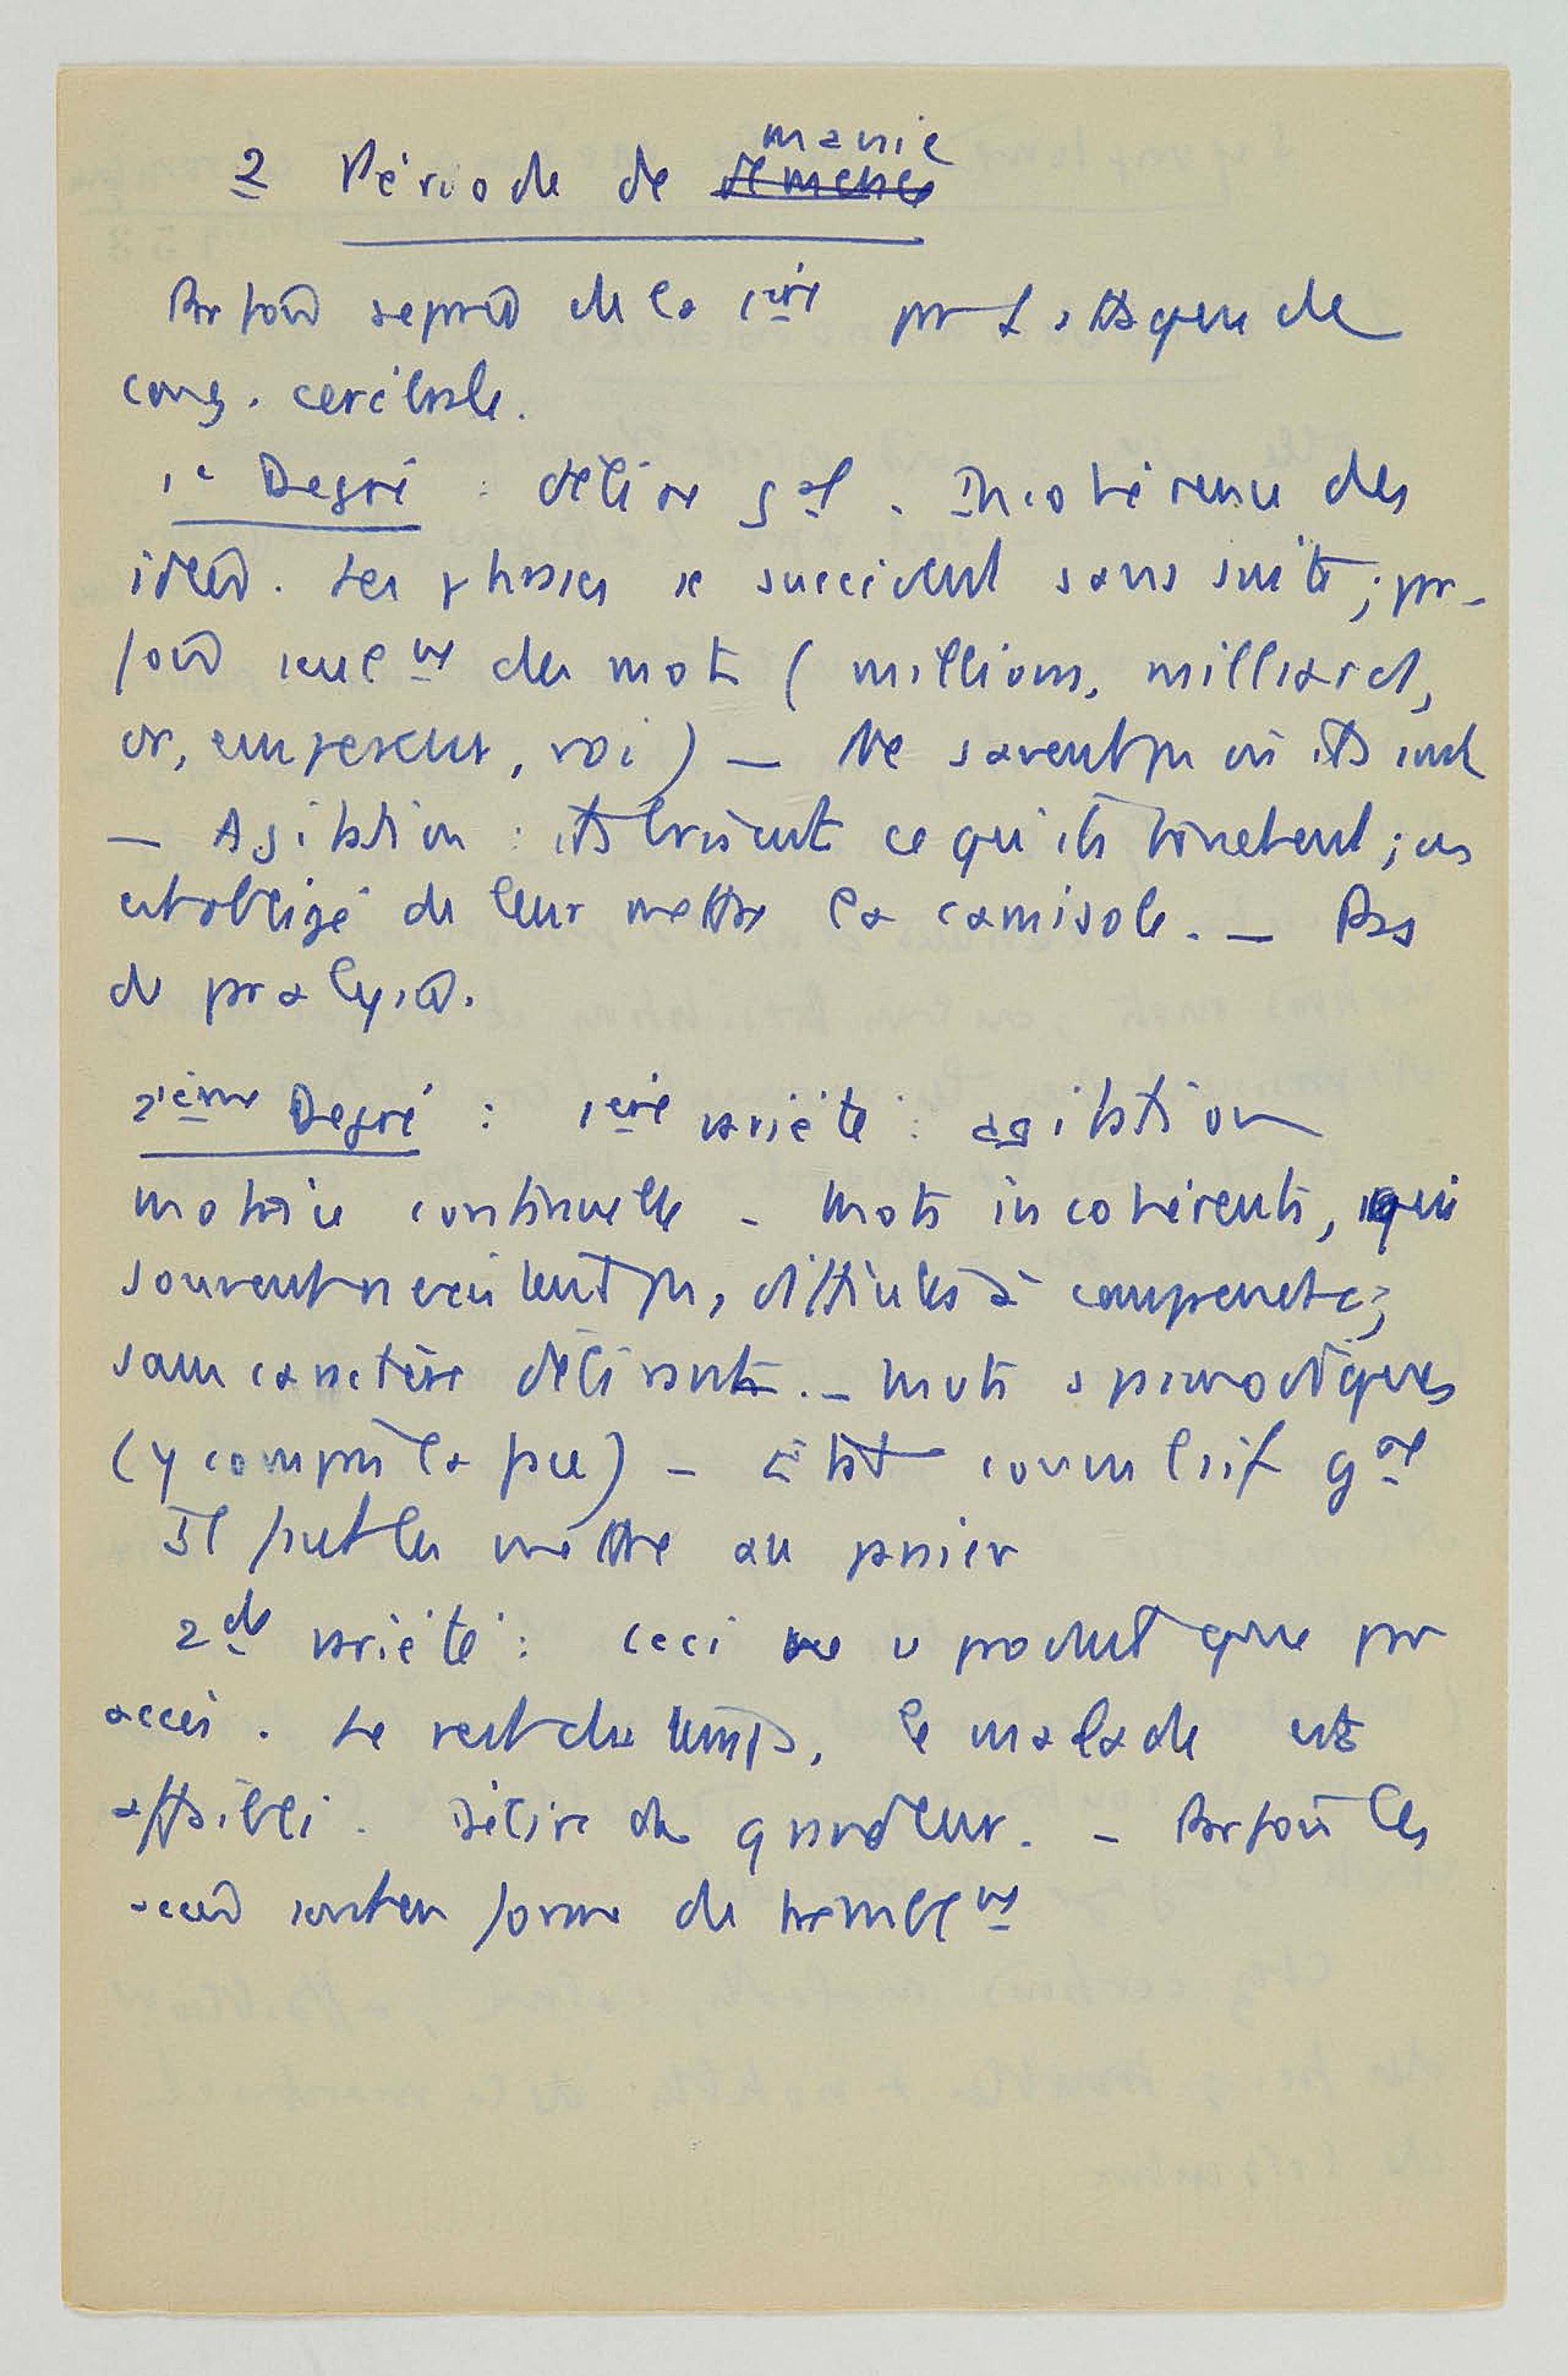 2 Période de ~~démence~~ manie
Parfois séparée de la 1ère par 1 attaque de
cong. cérébrale.
1° Degré : délire gal. Incohérence des
idées. Les phrases se succèdent sans suite ; par-
fois seulnt des mots (millions, milliards,
or, empereur, roi) — Ne savent pas où ils sont
— Agitation : ils brisent ce qu'ils touchent ; on
est obligé de leur mettre la camisole. — Pas
de paralysie.
2ième Degré : 1ère variété : agitation
motrice continuelle - Mots incohérents, qui
souvent n'existent pas, difficiles à comprendre ;
sans caractère délirant. — Mvts spasmodiques
(y compris la face) — État convulsif gal
Il faut les mettre au panier
2de variété : ceci ne se produit que par
accès. Le reste du temps, le malade est
affaibli. Délire de grandeur. — Parfois les
accès sont en forme de tremblnt